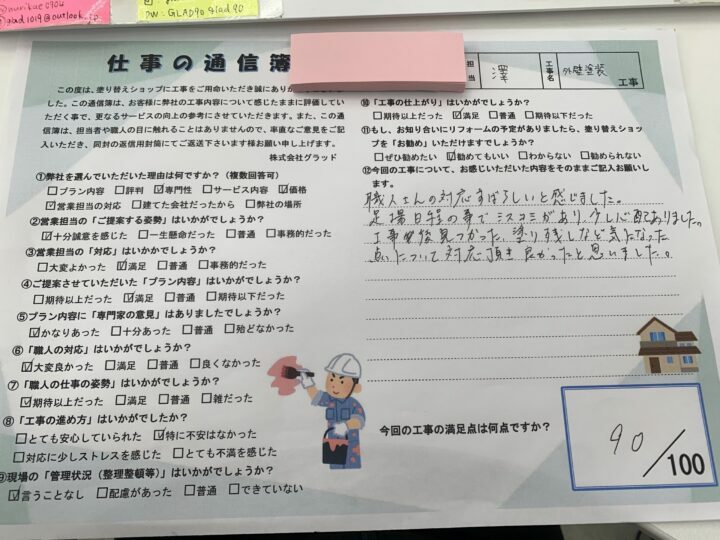 @nurikae0904
glad1019@outlook.jp
PW:GLAD90glad90
仕事の通信簿
担当
澤
工事名
外壁塗装
工事
この度は、塗り替えショップに工事をご用命いただき誠にあり
した。この通信簿は、お客様に弊社の工事内容について感じたままに評価してい
ただく事で、更なるサービスの向上の参考にさせていただきます。また、この通信
簿は、担当者や職人の目に触れることはありませんので、率直なご意見をご記
入いただき、同封の返信用封筒にてご返送下さいます様お願い申し上げます。
株式会社グラッド
①弊社を選んでいただいた理由は何ですか?(複数回答可)
□プラン内容 □評判 ☑専門性 □サービス内容 ☑価格
☑営業担当の対応 □建てた会社だったから □弊社の場所
②営業担当の「ご提案する姿勢」はいかがでしょうか?
☑十分誠意を感じた □一生懸命だった □普通 □事務的だった
③営業担当の「対応」はいかかでしょうか?
□大変よかった ☑満足 □普通 □事務的だった
④ご提案させていただいた「プラン内容」はいかがでしょうか?
□期待以上だった ☑満足 □普通 □期待以下だった
⑤プラン内容に「専門家の意見」はありましたでしょうか?
☑かなりあった □十分あった □普通 □殆どなかった
⑥「職人の対応」はいかがでしょうか?
☑大変良かった □満足 □普通 □良くなかった
⑦「職人の仕事の姿勢」はいかがでしょうか?
☑期待以上だった □満足 □普通 □雑だった
⑧「工事の進め方」はいかがでしたか?
□とても安心していられた ☑特に不安はなかった
□対応に少しストレスを感じた □とても不満を感じた
⑨現場の「管理状況(整理整頓等)」はいかがでしょうか?
☑言うことなし □配慮があった □普通 □できていない
⑩「工事の仕上がり」はいかがでしょうか?
□期待以上だった ☑満足 □普通 □期待以下だった
⑪もし、お知り合いにリフォームの予定がありましたら、塗り替えショッ
プを「お勧め」いただけますでしょうか?
□ぜひ勧めたい ☑勧めてもいい □わからない □勧められない
⑫今回の工事について、お感じいただいた内容をそのままご記入お願い
します。
職人さんの対応すばらしいと感じました。
足場日程の事でミスコミがあり、少し心配ありました。
工事後見つかった、塗り残しなど気になった
点について対応頂き良かったと思いました。
今回の工事の満足点は何点ですか?
90/100